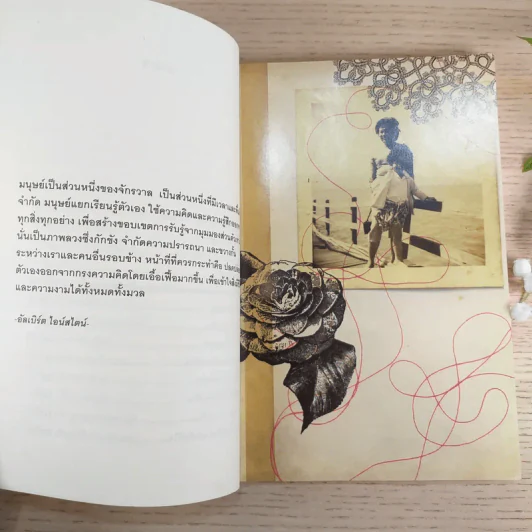 มนุษย์เป็นส่วนหนึ่งของจักรวาล เป็นส่วนหนึ่งที่มีเวลาและ
จำกัด มนุษย์แยกเรียนรู้ตัวเอง ใช้ความคิดและความรู้สึก
ทุกสิ่งทุกอย่าง เพื่อสร้างขอบเขตการรับรู้จากมุมมองส่วนตัว
นั่นเป็นภาพลวงซึ่งกักขัง จำกัดความปรารถนา และขวางกั้น
ระหว่างเราและคนอื่นรอบข้าง หน้าที่ที่ควรกระทำคือ
ตัวเองออกจากกรงความคิดโดยเอื้อเฟื้อมากขึ้น เพื่อเข้าใจ
และความงามได้ทั้งหมดทั้งมวล
-อัลเบิร์ต ไอน์สไตน์-